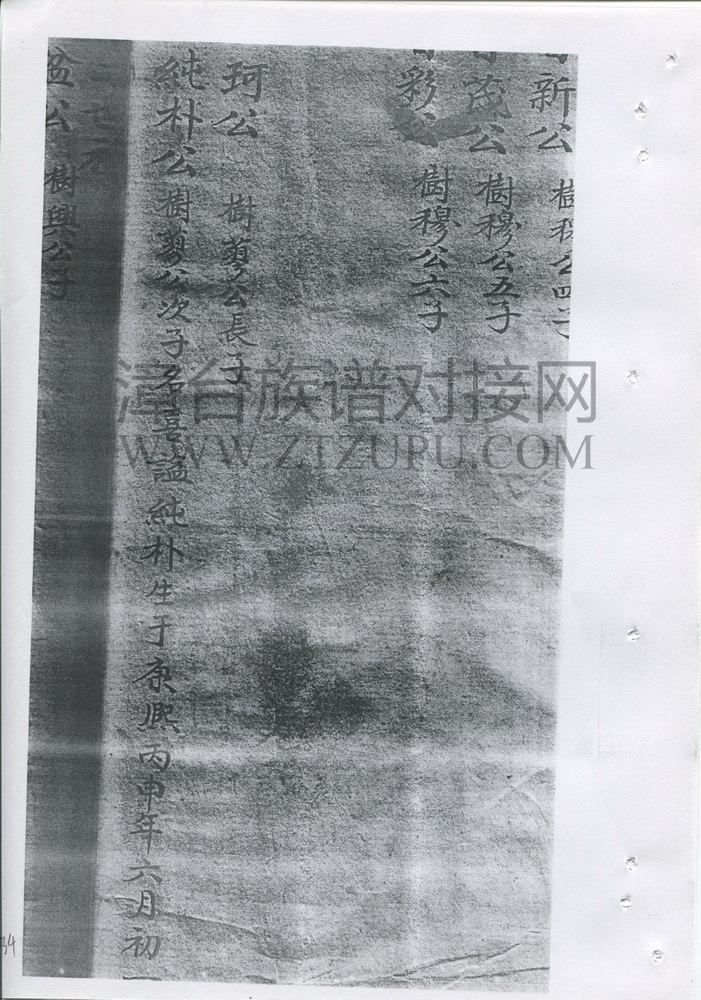 新公 樹穆公四子
茂公 樹穆公五子
彩公 樹穆公六子
珂公 樹蔓公長子
純朴公 樹蔓公次子名喜諡純朴生于康熙丙申年六月初一
盆公 樹興公子
漳台族谱对接网
WWW.ZTZUPU.COM
34